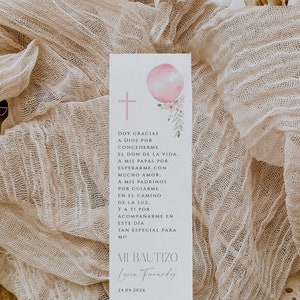 DOY GRACIAS
A DIOS POR
CONCEDERME
EL DON DE LA VIDA.
A MIS PAPAS POR
ESPERARME CON
MUCHO AMOR.
A MIS PADRINOS
POR GUIARME
EN EL CAMINO
DE LA LUZ.
Y A TI POR
ACOMPAÑARME EN
ESTE DÍA
TAN ESPECIAL PARA
MI!
MI BAUTIZO
24.04.2024